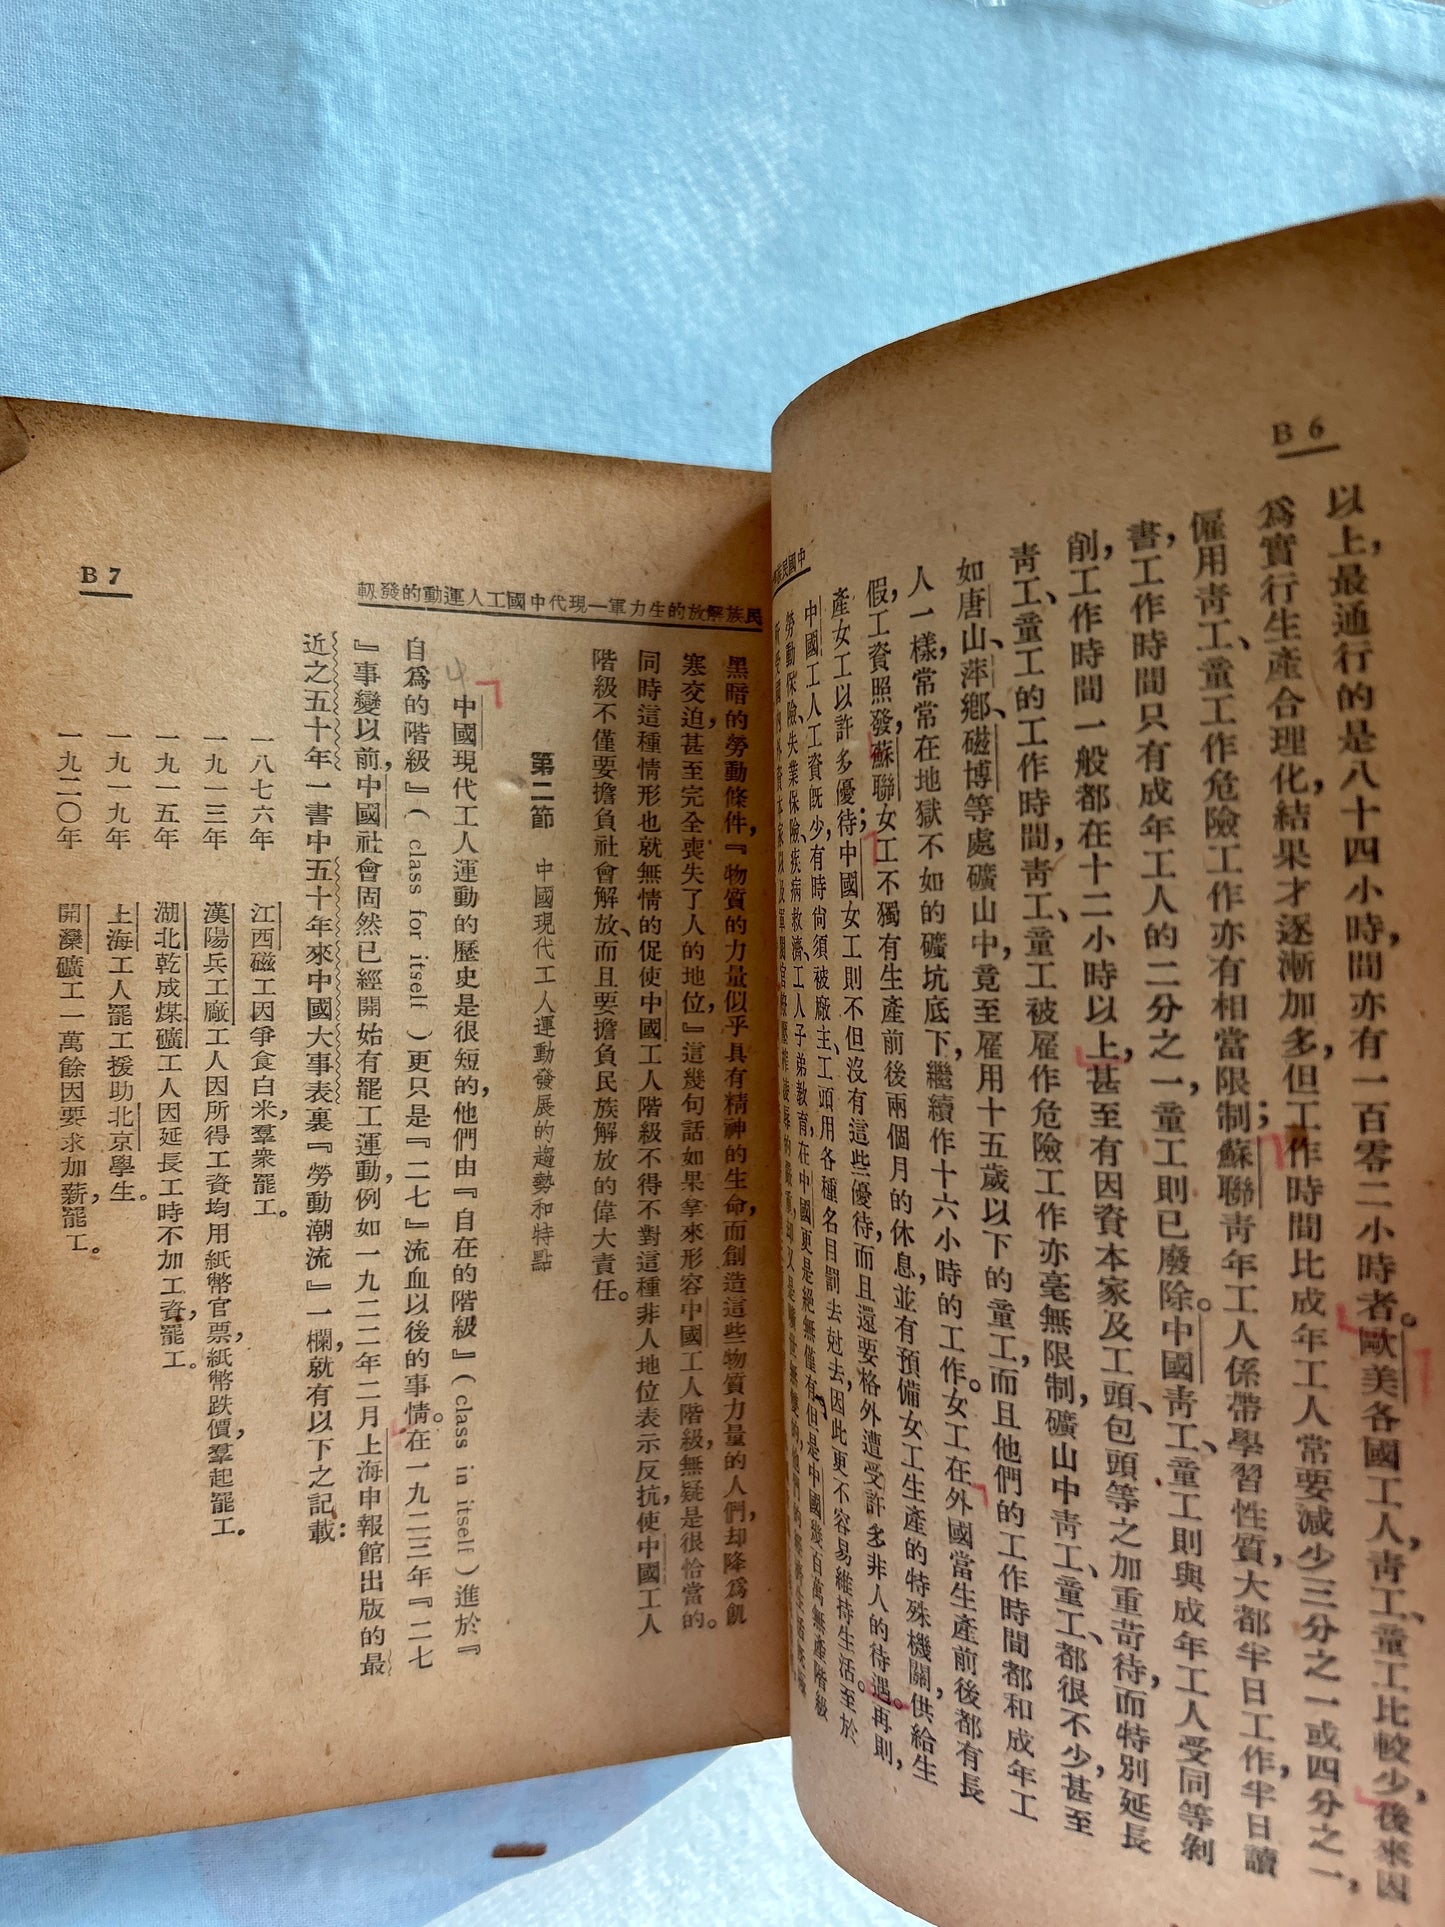 B 6
以上，最通行的是八十四小時，間亦有一百零二小時者。歐美各國工人，靑工、童工比較少，後來因
爲實行生產合理化，結果才逐漸加多，但工作時間比成年工人常要減少三分之一或四分之一，
僱用靑工、童工作危險工作亦有相當限制；蘇聯靑年工人係帶學習性質，大都半日工作，半日讀
書，工作時間只有成年工人的二分之一，童工則已廢除。中國靑工、童工則與成年工人受同等剝
削，工作時間一般都在十二小時以上，甚至有因資本家及工頭、包頭等之加重苛待，而特別延長
靑工、童工的工作時間，靑工、童工被雇作危險工作亦毫無限制，礦山中靑工、童工、都很不少，甚至
如唐山、萍鄉、磁博等處礦山中，竟至雇用十五歲以下的童工，而且他們的工作時間都和成年工
人一樣，常常在地獄不如的礦坑底下，繼續作十六小時的工作。女工在外國當生產前後都有長
假，工資照發，蘇聯女工不獨有生產前後兩個月的休息，並有預備女工生產的特殊機關，供給生
產女工以許多優待；中國女工則不但沒有這些優待，而且還要格外遭受許多非人的待遇。再則，
中國工人工資旣少，有時尙須被廠主、工頭用各種名目罰去尅去，因此更不容易維持生活。至於
勞動保險、失業保險、疾病救濟、工人子弟教育，在中國更是絕無僅有，但是中國幾百萬無產階級
中國民族
B 7
民族解放的生力軍—現代中國工人運動的發靱
黑暗的勞動條件，『物質的力量似乎具有精神的生命，而創造這些物質力量的人們，却降爲飢
寒交迫，甚至完全喪失了人的地位，』這幾句話如果拿來形容中國工人階級，無疑是很恰當的。
同時這種情形也就無情的促使中國工人階級不得不對這種非人地位表示反抗，使中國工人
階級不僅要擔負社會解放、而且要擔負民族解放的偉大責任。
第二節　中國現代工人運動發展的趨勢和特點
中國現代工人運動的歷史是很短的，他們由『自在的階級』（class in itself）進於『
自爲的階級』（class for itself）更只是『二七』流血以後的事情。在一九二三年『二七
』事變以前，中國社會固然已經開始有罷工運動，例如一九二二年二月上海申報館出版的最
近之五十年一書中五十年來中國大事表裏『勞動潮流』一欄，就有以下之記載：
一八七六年　江西磁工因爭食白米，羣衆罷工。
一九一三年　漢陽兵工廠工人因所得工資均用紙幣官票，紙幣跌價，羣起罷工。
一九一五年　湖北乾成煤礦工人因延長工時不加工資，罷工。
一九一九年　上海工人罷工援助北京學生。
一九二〇年　開灤礦工一萬餘因要求加薪，罷工。